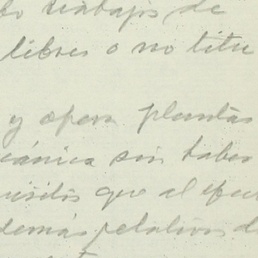 trabajos de
libres o no titu
y opera plantas
cánica sin haber
uisitos que al efec
demás relativos d